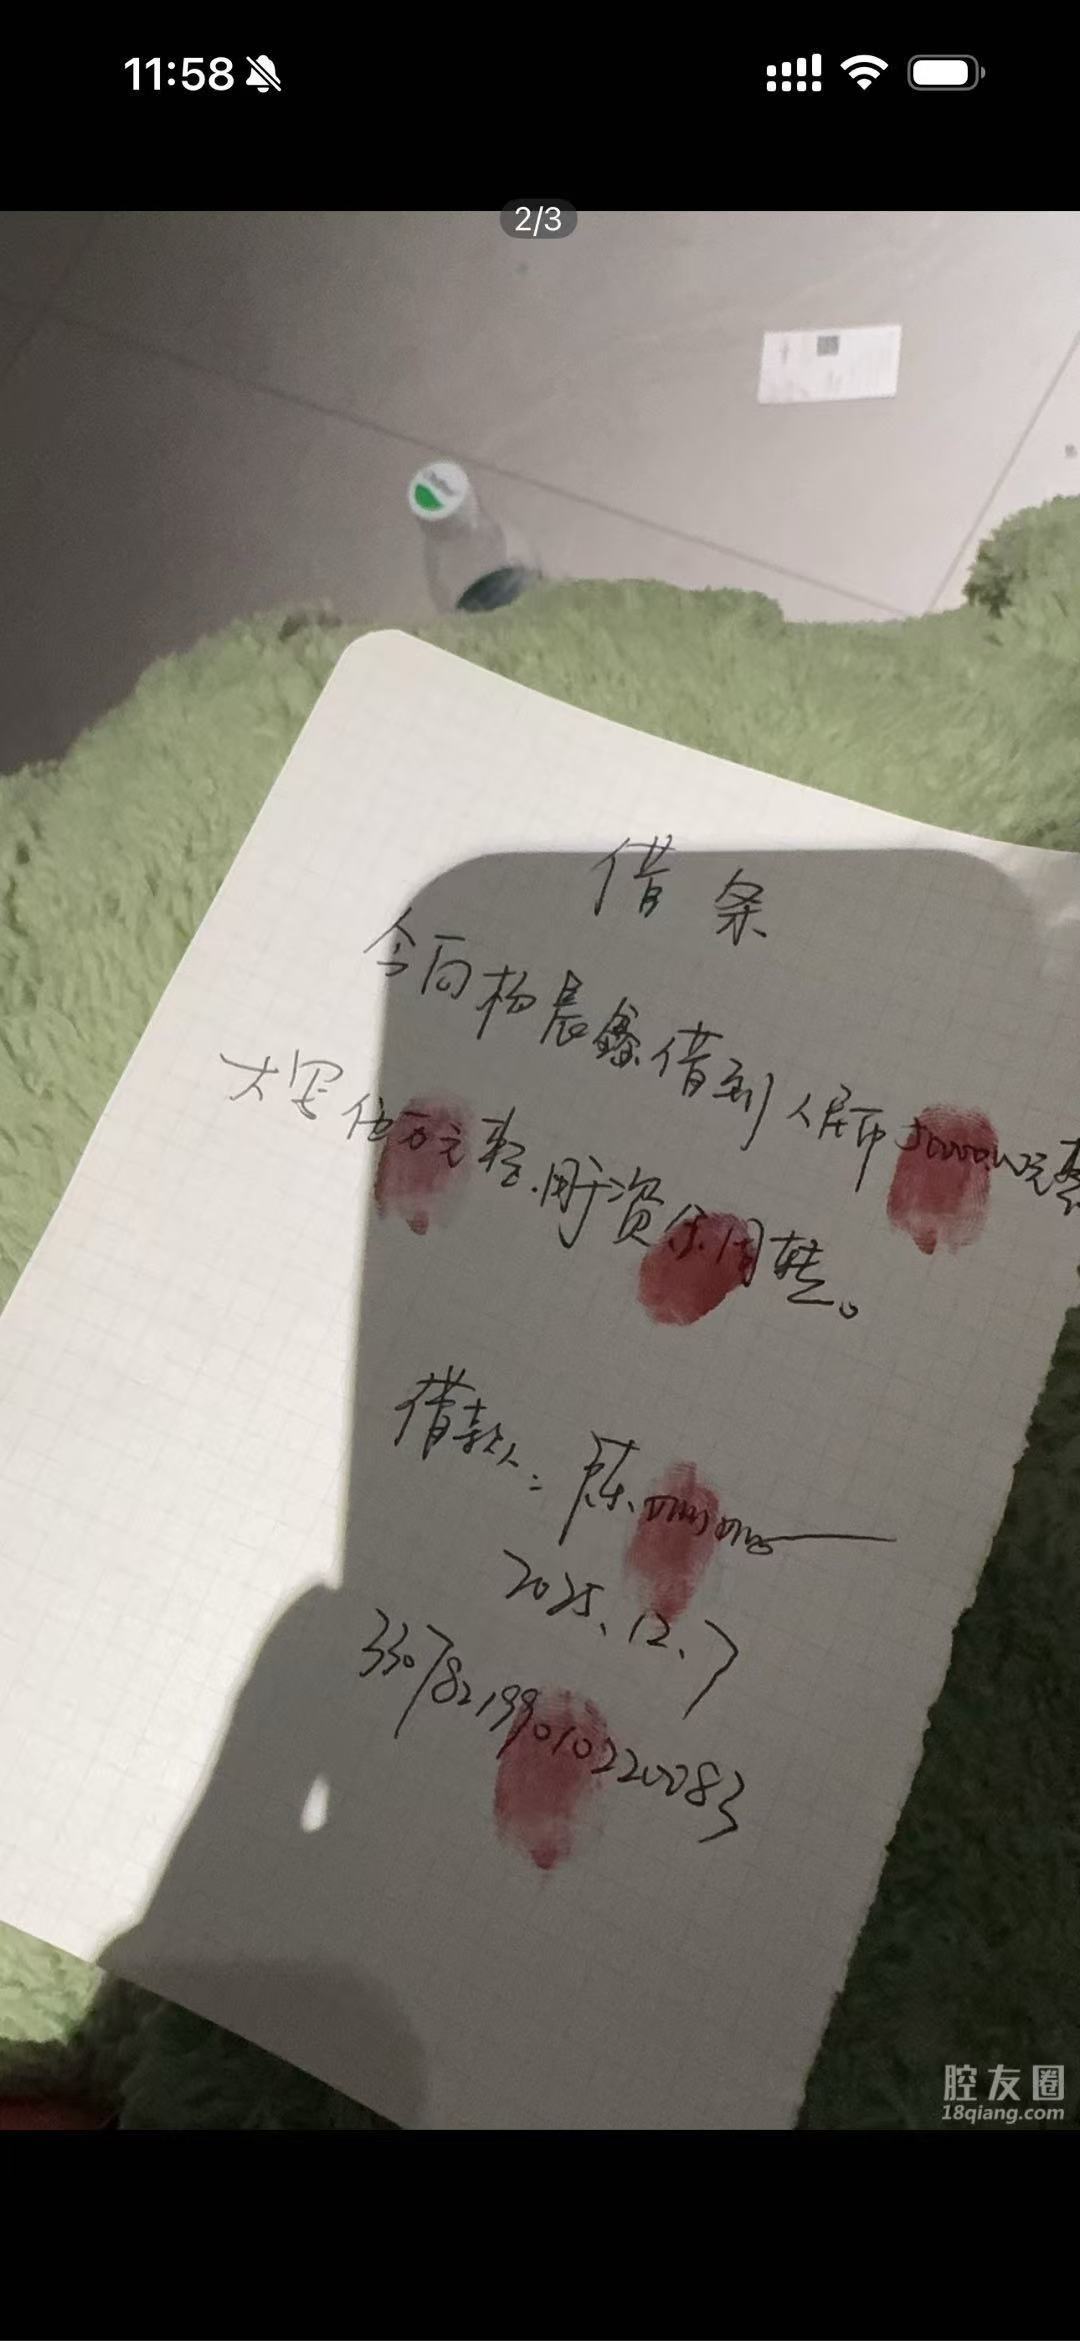 11:58
2/3
借条
今向杨晨鑫借到人民币50000.00元整
大写伍万元整.用于资金周转。
借款人：陈
2025.12.7
330782199010220083
腔友圈
18qiang.com